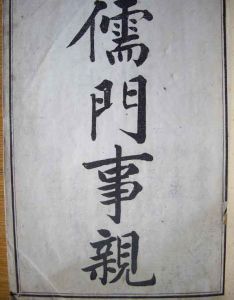 儒門事親